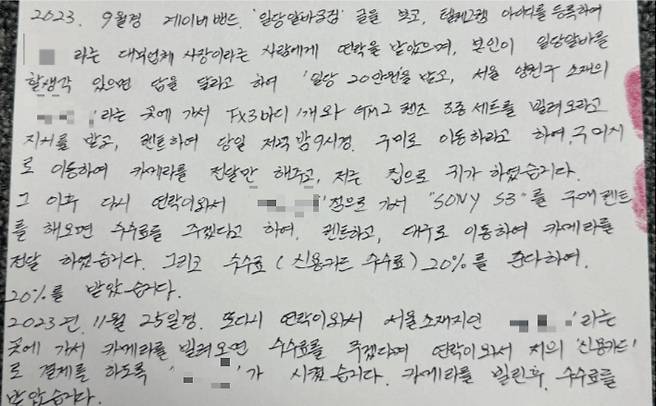 2023. 9월경 네이버밴드, '일당알바구함' 글을 보고, 텔레그램 아이디를 등록하여
라는 대부업체 사장이라는 사람에게 연락을 받았으며, 본인이 일당알바를
할생각 있으면 답을 달라고 하여 '일당 20만원을 받고, 서울 양천구 소재의
'라는 곳에 가서 FX3바디 1개와 GM2 렌즈 3종세트를 빌려오라고
지시를 받고, 렌트하여 당일 저녁 밤9시경. 구미로 이동하라고 하여, 구미시
로 이동하여 카메라를 전달만 해주고, 저는 집으로 귀가 하였습니다.
그 이후 다시 연락이와서 '집으로 가서 "SONY S3"를 구매렌트
를 해오면 수수료를 주겠다고 하여. 렌트하고, 대구로 이동하여 카메라를
전달 하였습니다. 그리고 수수료 (신용카드 수수료) 20%를 준다하여.
20%를 받았습니다.
2023년, 11월 25일경. 또다시 연락이와서 서울소재지인 '라는
곳에 가서 카메라를 빌려오면 수수료를 주겠다며 연락이와서 저의 '신용카드'
로 결제를 하도록 ' '가 시켰습니다. 카메라를 빌린후, 수수료를
받았습니다.